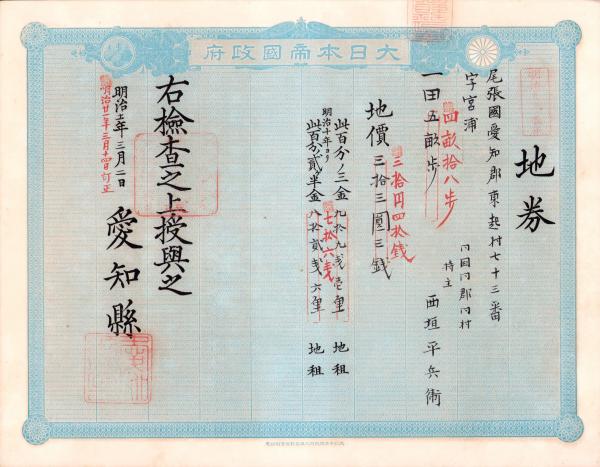 大日本帝國政府
地券
尾張國愛知郡東起村七十三番
字宮浦
四畝拾八歩
一田五畝歩
同國同郡同村
持主 西垣平兵衛
三拾円四拾銭
地價三拾三圓三銭
此百分ノ三金九拾九銭壱厘 地租
明治十年ヨリ
七拾六銭
此百分ノ貳ヶ半金八拾貳銭六厘 地租
右檢査之上授與之
明治十二年三月二日
明治廿一年三月十四日訂正
愛知縣